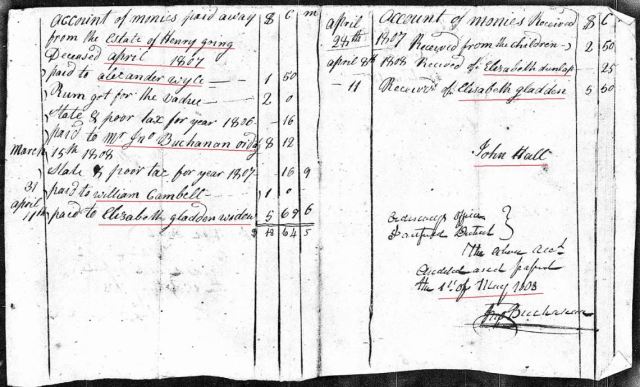 Account of monies paid away $ C m
from the Estate of Henry
Deceased april 1807
paid to alexander wyle 1 50
Rum got for the Vadue 2 0
State & poor tax for year 1806 16
paid to Mr Jno Buchanan ordy 8 12
March 15th 1808
State & poor tax for year 1807 16 9
31 paid to william Cambell 1 0
april 11th paid to Elizabeth gladden widow 5 69 6
64 5
Account of monies Received $ C
april 28th 1807 Received from the children 2 50
april 8th 1808 Received of Elizabeth dunlap 25
11 Received of Elizabeth gladden 5 50
John Hall
ordinarys office
District
The above acct
audited and passed
the 1st of May 1808
Jno Buchanan